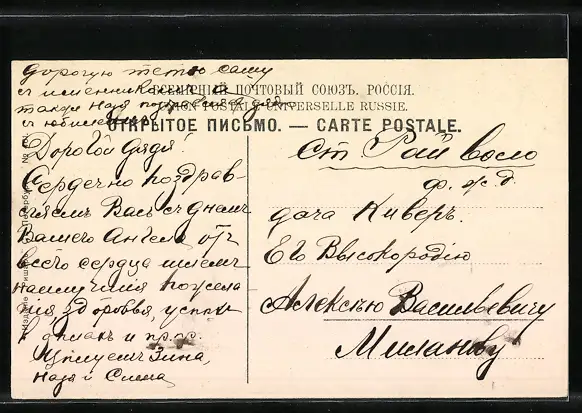 дорогую тетю Сашу
съ именинникомъ а
также Надя поздравляетъ дядю
съ юбилеемъ
ВСЕМІРНЫЙ ПОЧТОВЫЙ СОЮЗЪ. РОССІЯ.
UNION POSTALE UNIVERSELLE RUSSIE.
ОТКРЫТОЕ ПИСЬМО. — CARTE POSTALE.
Дорогой дядя!
Сердечно поздрав-
ляемъ Васъ съ днемъ
Вашего Ангела, отъ
всего сердца шлемъ
наилучшія пожела
нія здоровья, успѣха
въ дѣлахъ и проч.
Цѣлуемъ Зина,
Надя и
Ст. Райволо
ф. ж. д.
дача Киверъ.
Его Высокородію
Алексѣю Васильевичу
Миланову